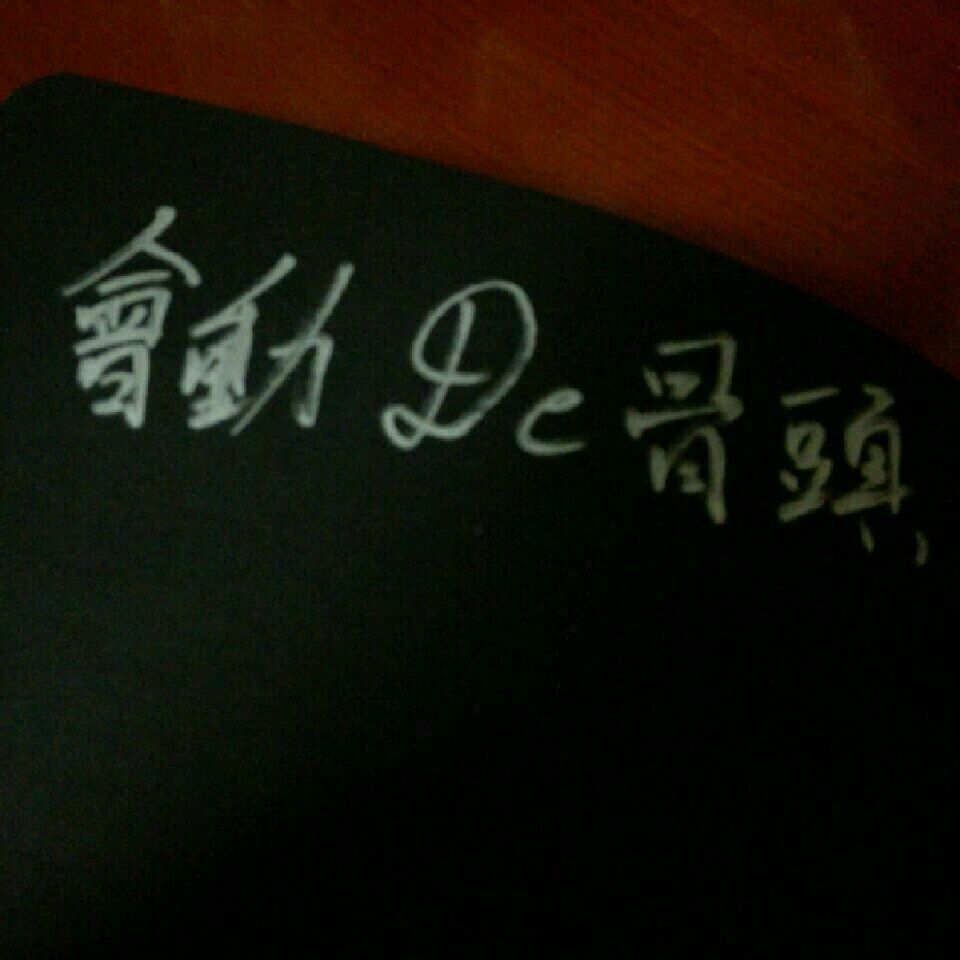 會動De骨頭